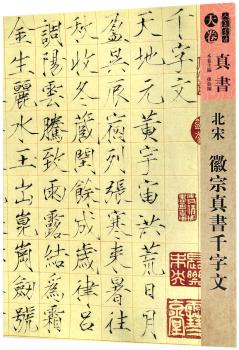 真書
北宋 徽宗真書千字文
天卷
千字文
天地元黃宇宙洪荒日月
盈昃辰宿列張寒來暑往
秋收冬藏閏餘成歲律呂
調陽雲騰致雨露結為霜
金生麗水玉出崑崗劍號